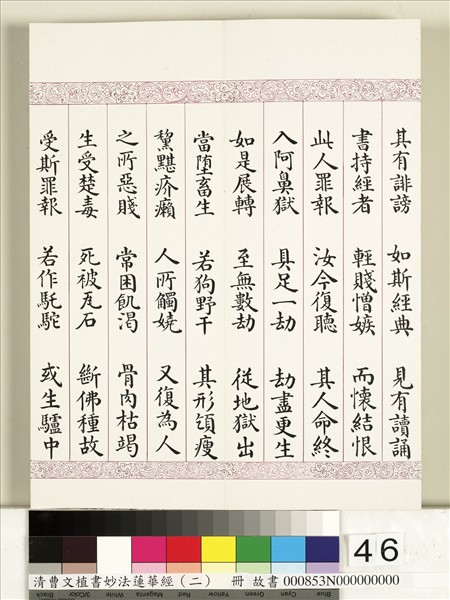 其有誹謗 如斯經典 見有讀誦
書持經者 輕賤憎嫉 而懷結恨
此人罪報 汝今復聽 其人命終
入阿鼻獄 具足一劫 劫盡更生
如是展轉 至無數劫 從地獄出
當墮畜生 若狗野干 其形頟瘦
黧黮疥癩 人所觸嬈 又復為人
之所惡賤 常困飢渴 骨肉枯竭
生受楚毒 死被瓦石 斷佛種故
受斯罪報 若作馲駝 或生驢中
46
清曹文植書妙法蓮華經(二) 冊 故書 000853N000000000
Black 3/Color White Magenta Red Yellow Green Cyan Blue